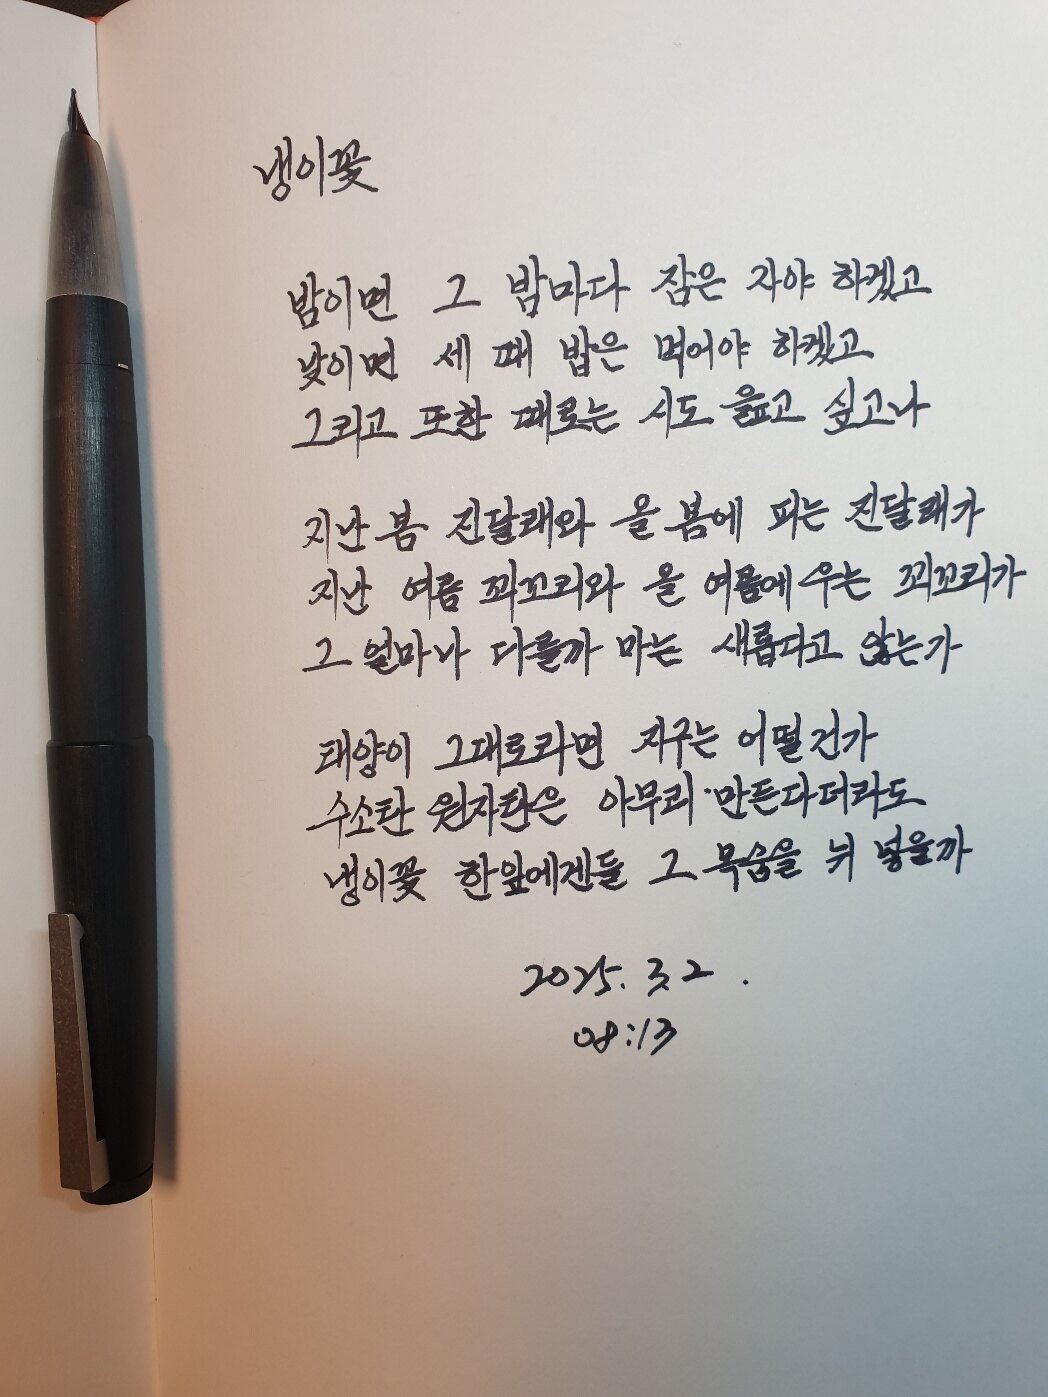 냉이꽃
밤이면 그 밤마다 잠은 자야 하겠고
낮이면 세 때 밥은 먹어야 하겠고
그리고 또한 때로는 시도 읊고 싶고나
지난 봄 진달래와 올 봄에 피는 진달래가
지난 여름 꾀꼬리와 올 여름에 우는 꾀꼬리가
그 얼마나 다를까 마는 새롭다고 않는가
태양이 그대로라면 지구는 어떨 건가
수소탄 원자탄은 아무리 만든다더라도
냉이꽃 한 잎에겐들 그 목숨을 뉘 넣을까
2025. 3. 2.
08:13